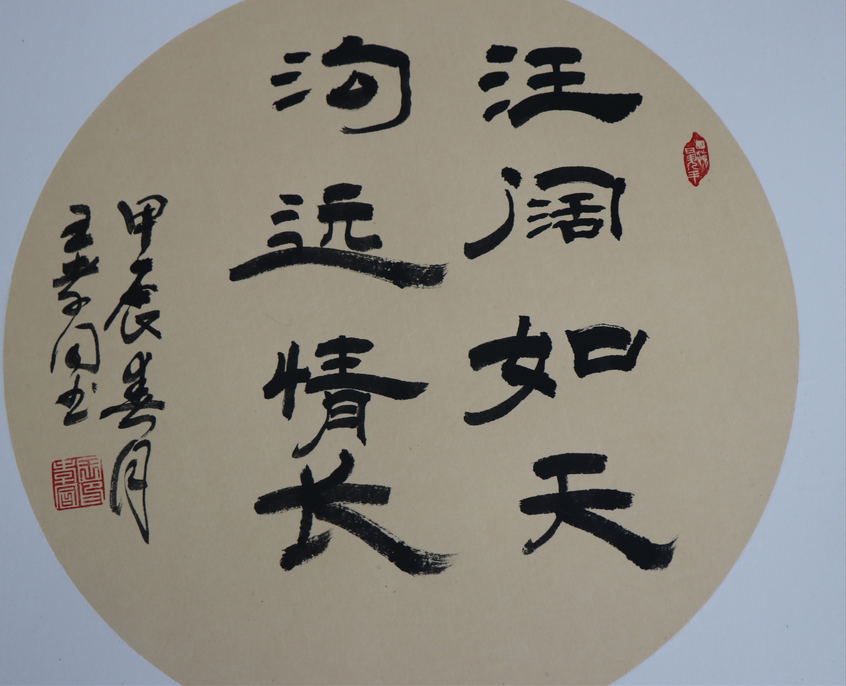 汪阔如天
沟远情长
甲辰春月
王孝同书